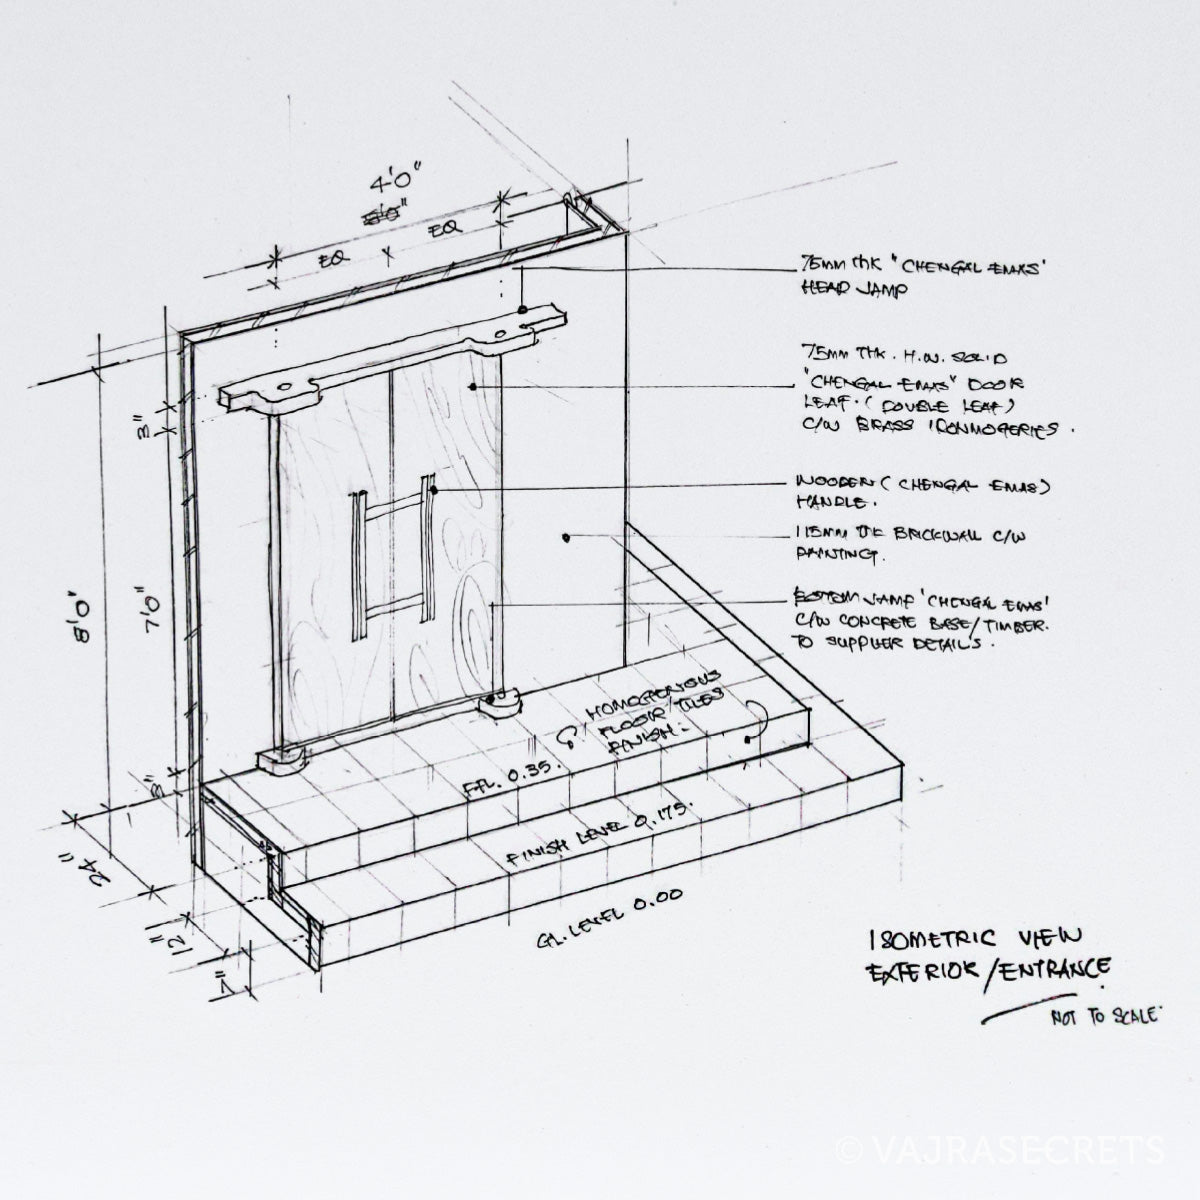 4'0"
EQ
EQ
75MM THK "CHENGAL EMAS'
HEAD JAMP
75MM THK. H.W. SOLID
"CHENGAL EMAS" DOOR
LEAF. (DOUBLE LEAF)
C/W BRASS IRONMOGERIES.
3"
WOODEN (CHENGAL EMAS)
HANDLE.
115MM THK BRICKWALL C/W
PAINTING.
8'0"
7'0"
BOTTOM JAMP 'CHENGAL EMAS'
C/W CONCRETE BASE/TIMBER.
TO SUPPLIER DETAILS.
HOMOGENIOUS
FLOOR TILES
FINISH.
FFL. 0.35.
3"
FINISH LEVEL 0.175.
24"
12"
7"
GL. LEVEL 0.00
ISOMETRIC VIEW
EXTERIOR/ENTRANCE
NOT TO SCALE
© VAJRASECRETS